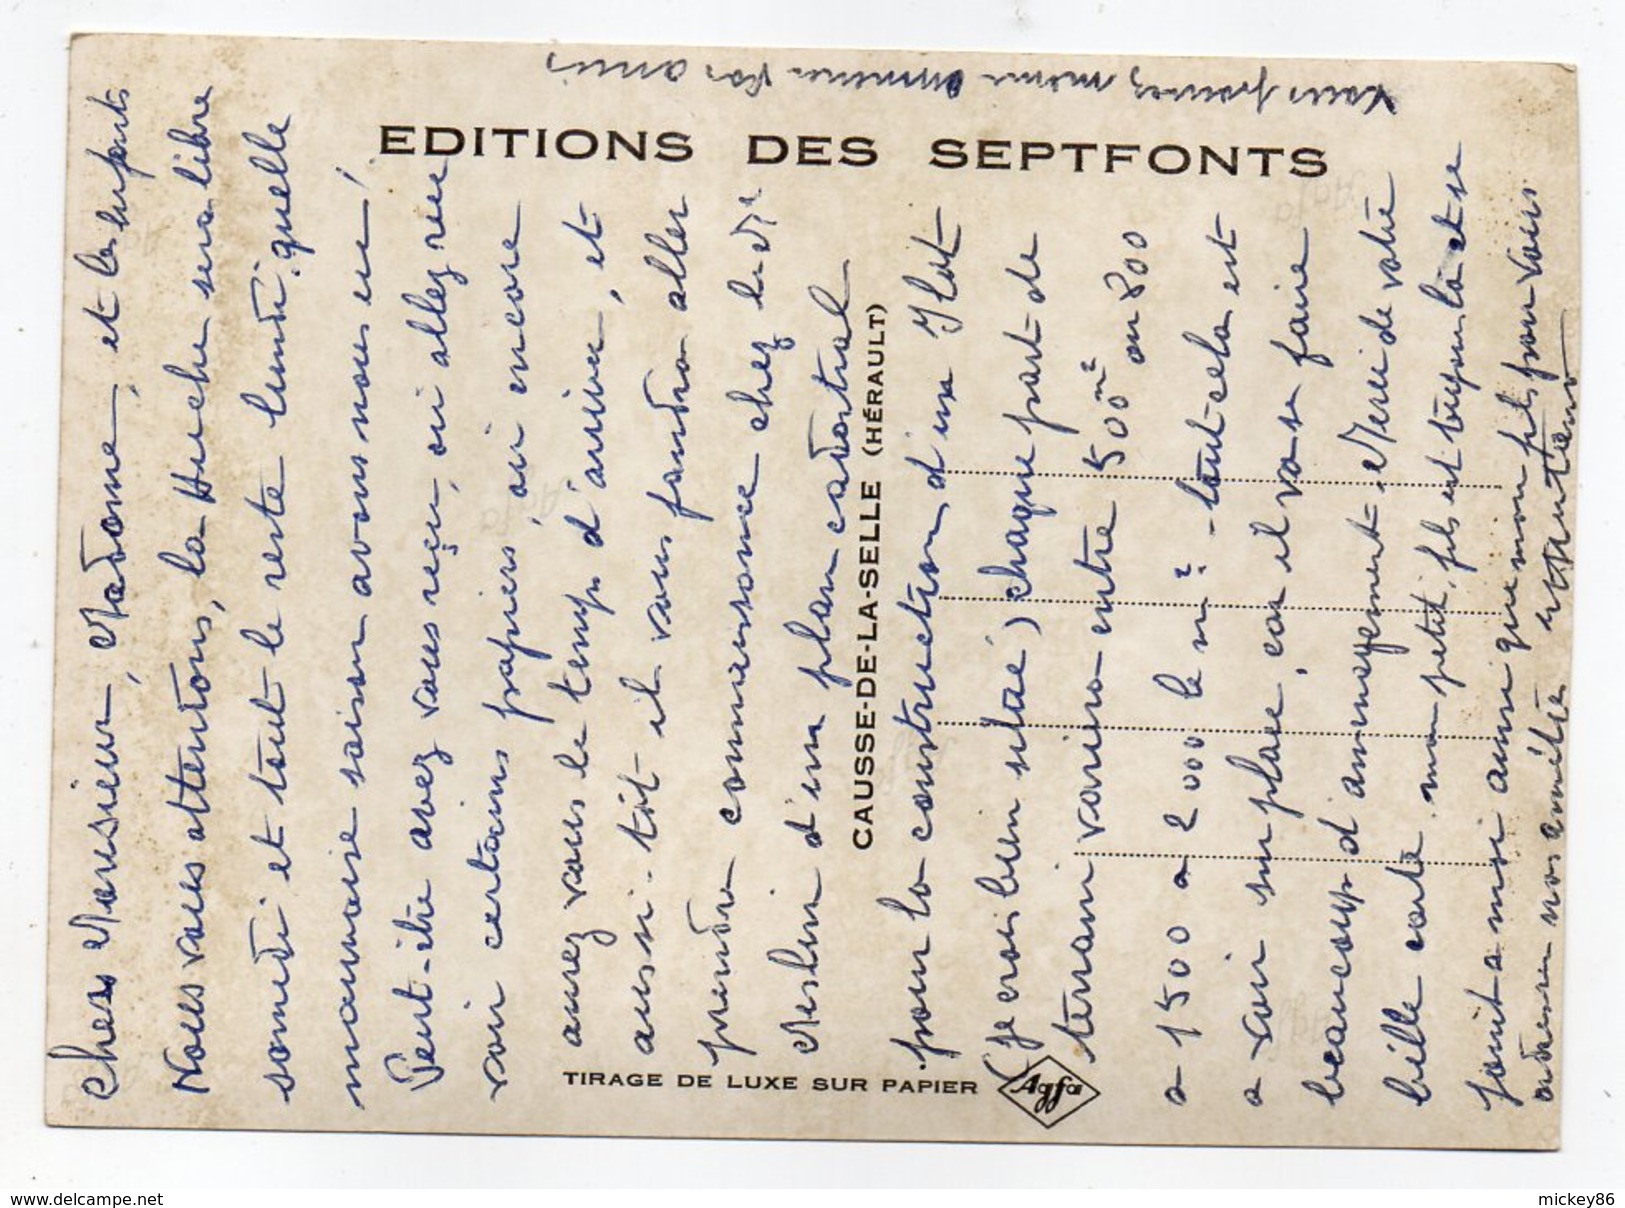 Vous pouvez même emmener vos amis
EDITIONS DES SEPTFONTS
CAUSSE-DE-LA-SELLE (HÉRAULT)
TIRAGE DE LUXE SUR PAPIER
Agfa
Chers Monsieur, Madame, et les enfants
Nous vous attendons, la Huche sera libre
samedi et tout le reste lundi. quelle
mauvaise saison avons nous eu!
Peut-être avez vous reçu, ou allez rece
voir certains papiers, ou encore
aurez vous le temps d'arriver, et
aussi-tôt il vous faudra aller
prendre connaissance chez le Mr
Meslin d'un plan cadastral
pour la construction d'un Ilot
(je crois bien situé) chaque part de
terrain variera entre 500 m² ou 800
a 1500 a 2000 le m² - tout cela est
a voir sur place, car il va se faire
beaucoup d'aménagement. Merci de votre
bille carte. mon petit fils est toujours là et se
joint a moi ainsi que mon fils pour vous
adresser nos amitiés
www.delcampe.net
mickey86